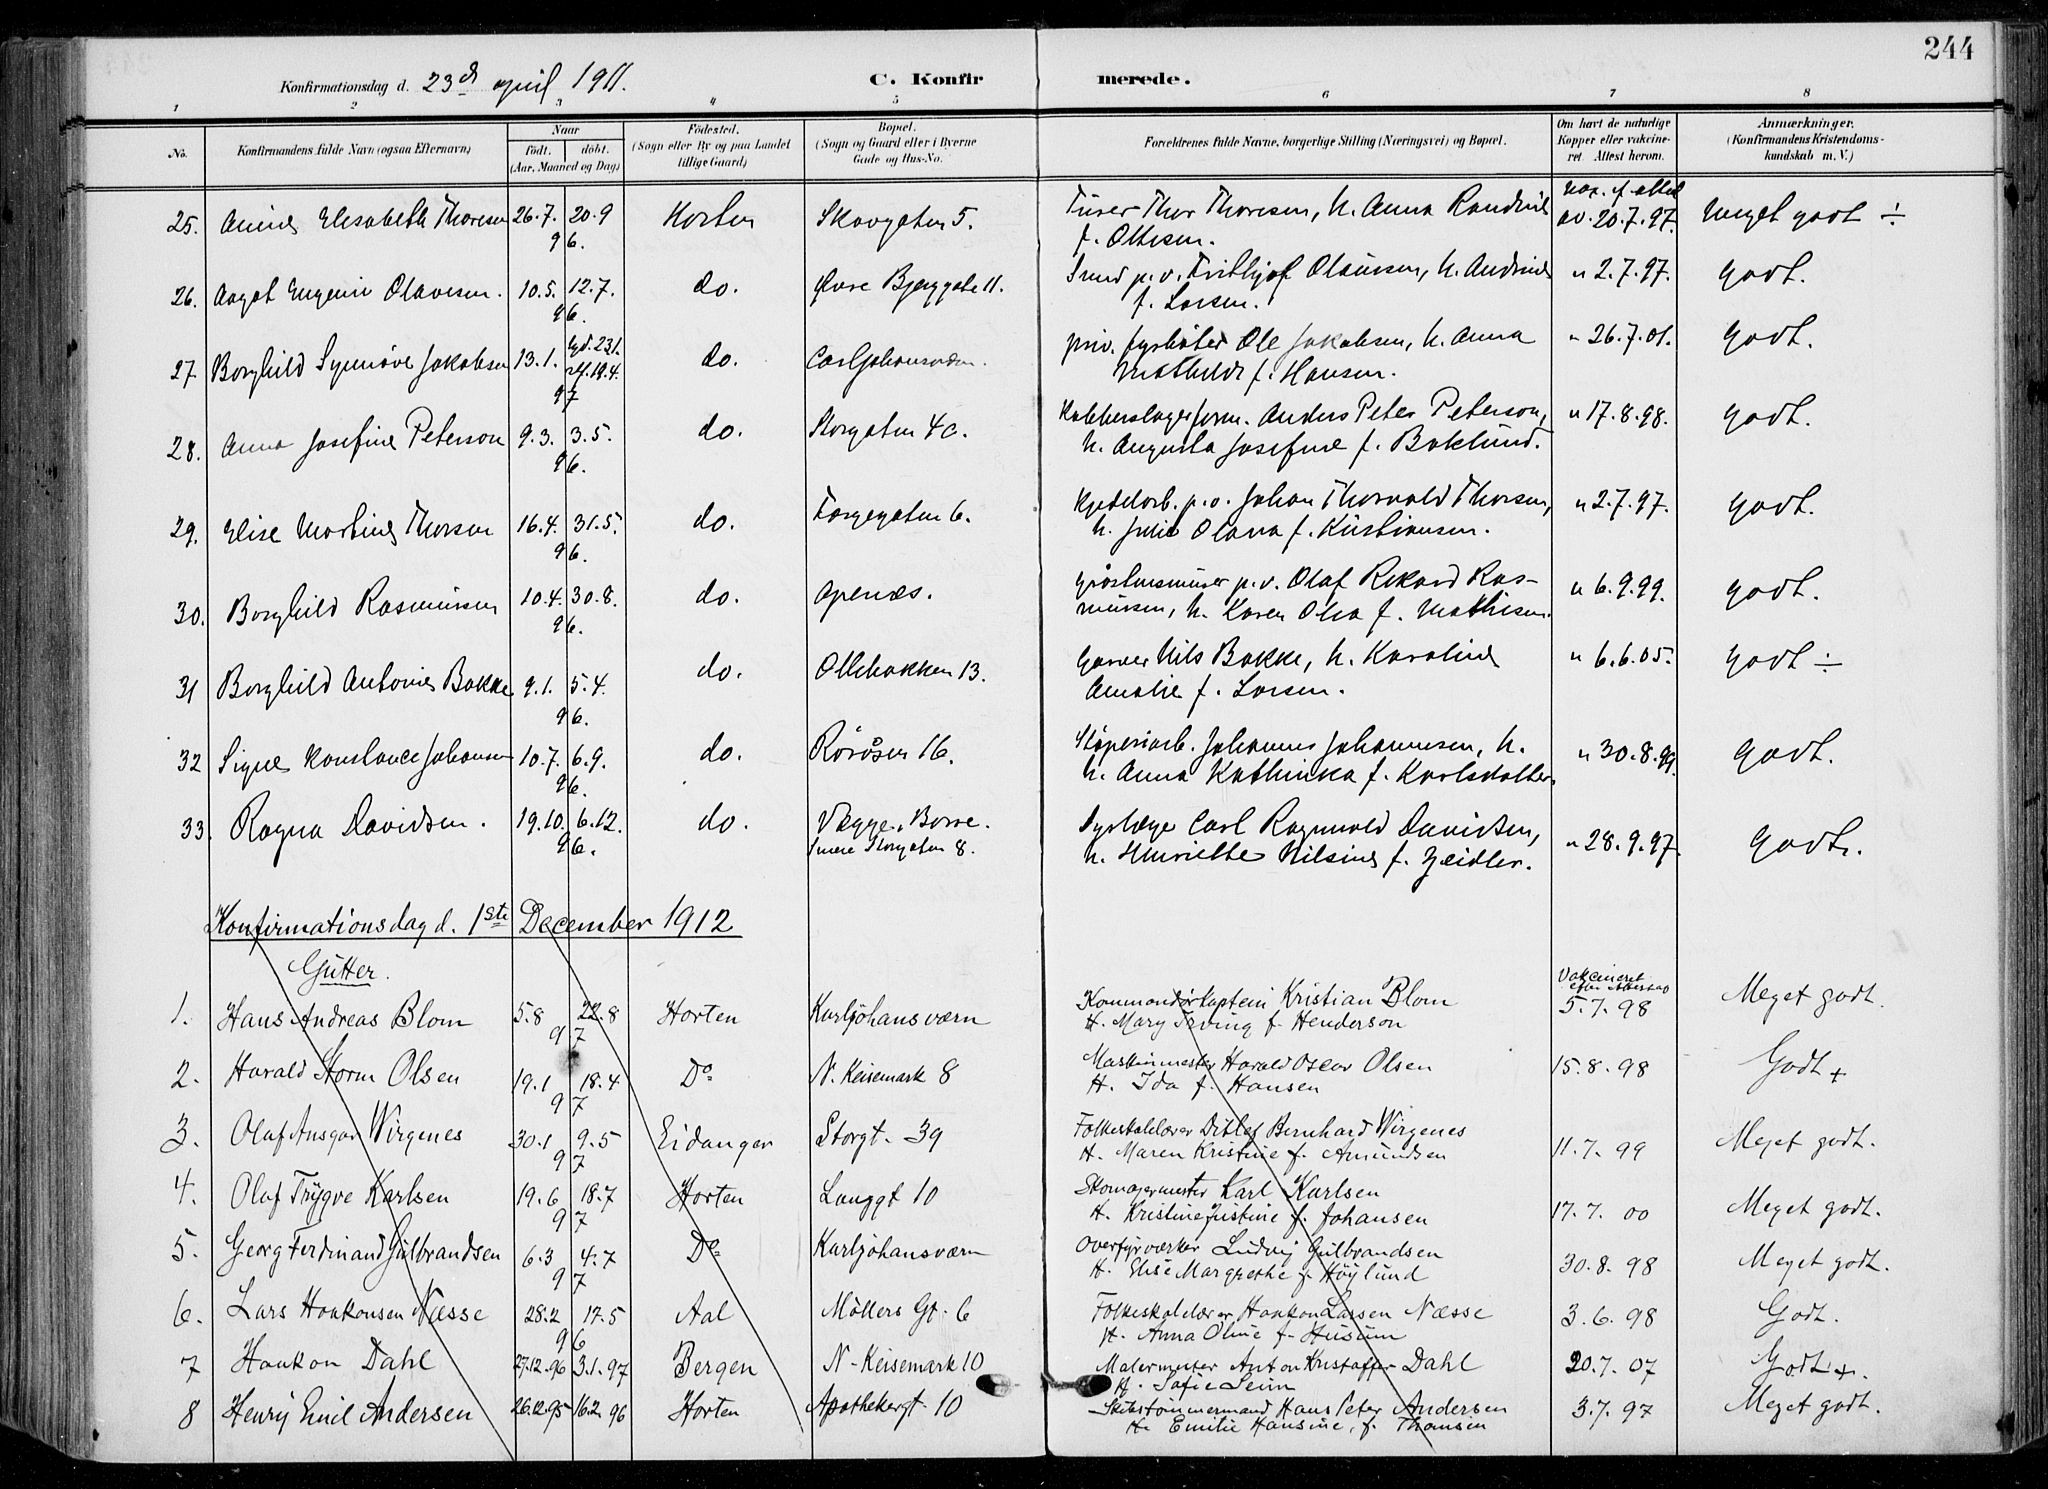 244
Konfirmationsdag d. 23d april 1911. C. Konfirmerede.
1 2 3 4 5 6 7 8
No. Konfirmandens fulde Navn (ogsaa Efternavn) Naar født. døbt. (Aar, Maaned og Dag) Fødested. (Sogn eller By og paa Landet tillige Gaard) Bopæl. (Sogn og Gaard eller i Byerne Gade og Hus-No.) Forældrenes fulde Navne, borgerlige Stilling (Næringsvei) og Bopæl. Om havt de naturlige Kopper eller vakcineret. Attest herom. Anmærkninger. (Konfirmandens Kristendomskundskab m. V.)
25. Elisabeth Thoresen 26.7. 20.9 96. Horten Skavgaten 5. Thor Thoresen, h. Anna Randine f. Ottesen. av. 20.7.97. Meget godt ÷
26. Aagot Eugenie Olavesen. 10.5. 12.7. 96. do. Øvre Bjerggate 11. Smed p.v. Frithjof Olaussen, h. Andrine f. Larsen. " 2.7.97. godt.
27. Borghild Synnøve Jakobsen 13.1. 23.1. 19.4. 97 do. Carljohansværn. priv. fyrbøter Ole Jakobsen, h. Anna Mathilde f. Hansen. " 26.7.01. godt.
28. Anna Josefine Peterson 9.3. 3.5. 96. do. Storgaten 4c. Kobberslagerform. Anders Peter Peterson, h. Augusta Josefine f. Boklund. " 17.8.98. godt.
29. Elise Martine Thorsen 16.4. 31.5. 96. do. Farvegaten 6. Kjedelarb. p.v. Johan Thorvald Thorsen, h. Julie Olava f. Kristiansen. " 2.7.97. godt.
30. Borghild Rasmussen 10.4. 30.8. 96. do. Apenæs. p.v. Olaf Rikard Rasmussen, h. Karen Olea f. Mathisen. " 6.9.99. godt.
31 Borghild Antonie Bakke 9.1. 5.4. 96. do. Ollebakken 13. Garver Nils Bakke, h. Karoline Amalie f. Larsen. " 6.6.05. godt ÷
32 Signe Konstance Johansen 10.7. 6.9. 96. do. Røråsen 16. Støperiarb. Johannes Johannesen, h. h. Anna Kathinka f. Karlsdatter. " 30.8.99. godt.
33. Ragna Davidsen. 19.10. 6.12. 96. do. Vegge, Borre. Storgaten 8. Dyrlæge Carl Ragnvald Davidsen, h. Henriette Nilsine f. Zeidler. " 28.9.97. godt.
Konfirmationsdag d. 1ste December 1912
Gutter.
1. Hans Andreas Blom 5.8 22.8 97 Horten Karljohansværn Kommandørkaptein Kristian Blom H. Mary Irving f. Henderson Vakcineret 5.7.98 Meget godt.
2. Harald Storm Olsen 19.1 18.4 97 Do N. Keisemark 8 Maskinmester Harald Oscar Olsen H. Ida f. Hansen 15.8.98 Godt +
3. Olaf Ansgar Wirgenes 30.1 9.5 97 Eidanger Storgt. 39 Folkeskolelærer Ditlef Bernhard Wirgenes H. Maren Kristine f. Amundsen 11.7.99 Meget godt.
4. Olaf Trygve Karlsen 19.6 18.7 97 Horten Langgt 10 Skomagermester Karl Karlsen H. Kristine Justine f. Johansen 17.7.00 Meget godt.
5. Georg Ferdinand Gulbrandsen 6.3 4.7 97 Do Karljohansværn Overfyrværker Ludvig Gulbrandsen H. Elise Margrethe f. Høylund 30.8.98 Meget godt.
6. Lars Haakonsen Næsse 28.2 17.5 96 Aal Møllers Gt. 6 Folkeskolelærer Haakon Larsen Næsse H. Anna Oline f. Husum 3.6.98 Godt.
7 Haakon Dahl 27.12.96 3.1.97 Bergen N-Keisemark 10 Malermester Anton Kristoffer Dahl H. Sofie Seim 20.7.07 Godt +.
8 Henry Emil Andersen 26.12.95 16.2 96 Horten Apothekergt 10 Skibstømmermand Hans Peter Andersen H. Emilie Hansine, f. Thomsen 3.7.97 Meget godt.